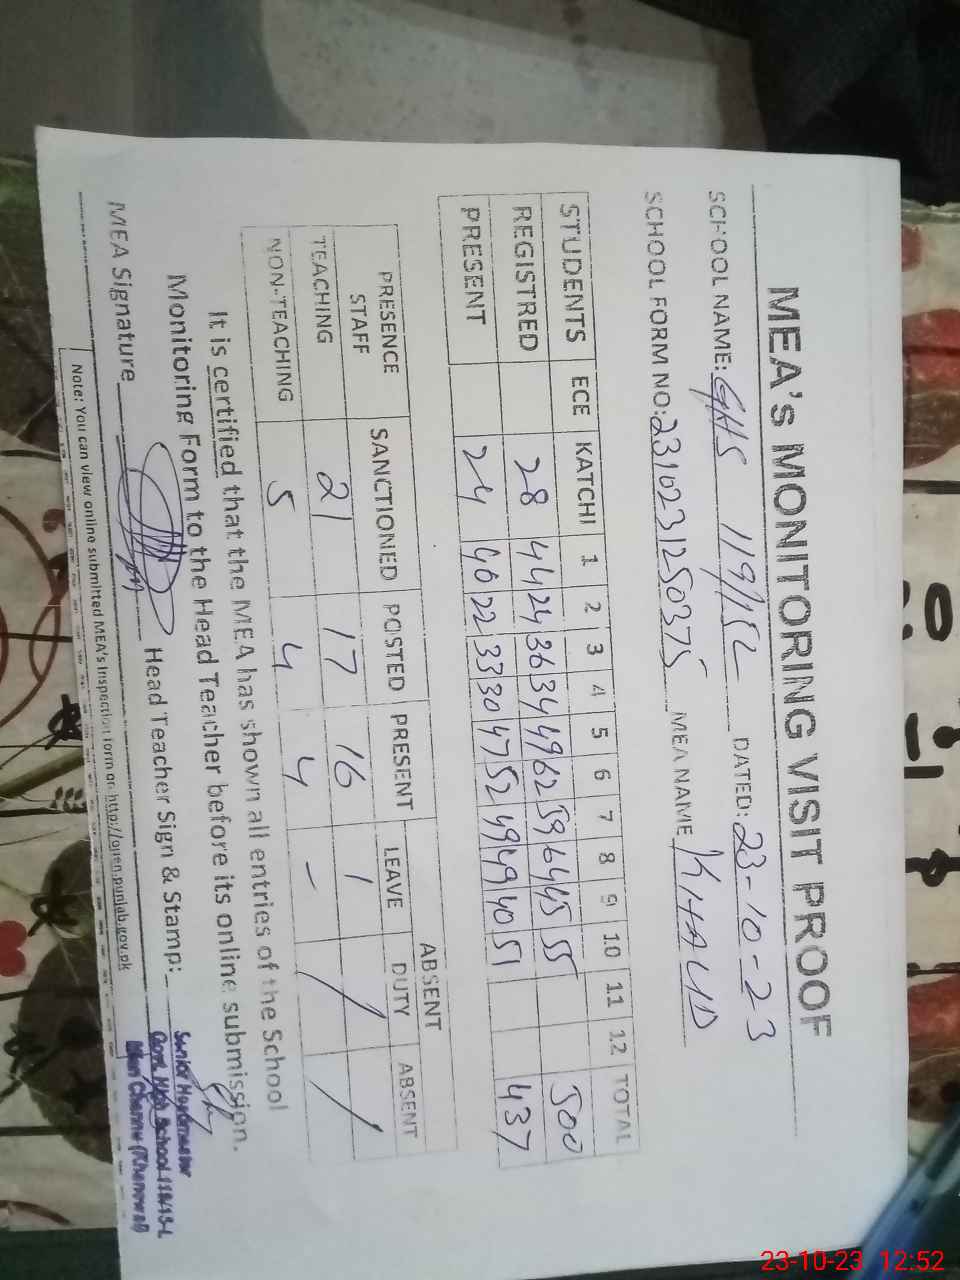 MEA's MONITORING VISIT PROOF
SCHOOL NAME: GHS 119/15L DATED: 23-10-23
SCHOOL FORM NO: 2310231250375 MEA NAME KHALID
STUDENTS ECE KATCHI 1 2 3 4 5 6 7 8 9 10 11 12 TOTAL
REGISTRED 28 44 24 36 34 49 62 59 64 45 55 500
PRESENT 24 40 22 33 30 47 52 49 49 40 51 437
PRESENCE STAFF SANCTIONED POSTED PRESENT ABSENT
LEAVE DUTY ABSENT
TEACHING 21 17 16 1 / /
NON-TEACHING 5 4 4 -
It is certified that the MEA has shown all entries of the School
Monitoring Form to the Head Teacher before its online submission.
MEA Signature Head Teacher Sign & Stamp:
Senior Headmaster
Govt. High School 119/15-L
Mian Channu (Khanewal)
Note: You can view online submitted MEA's Inspection form on http://open.punjab.gov.pk
23-10-23 12:52